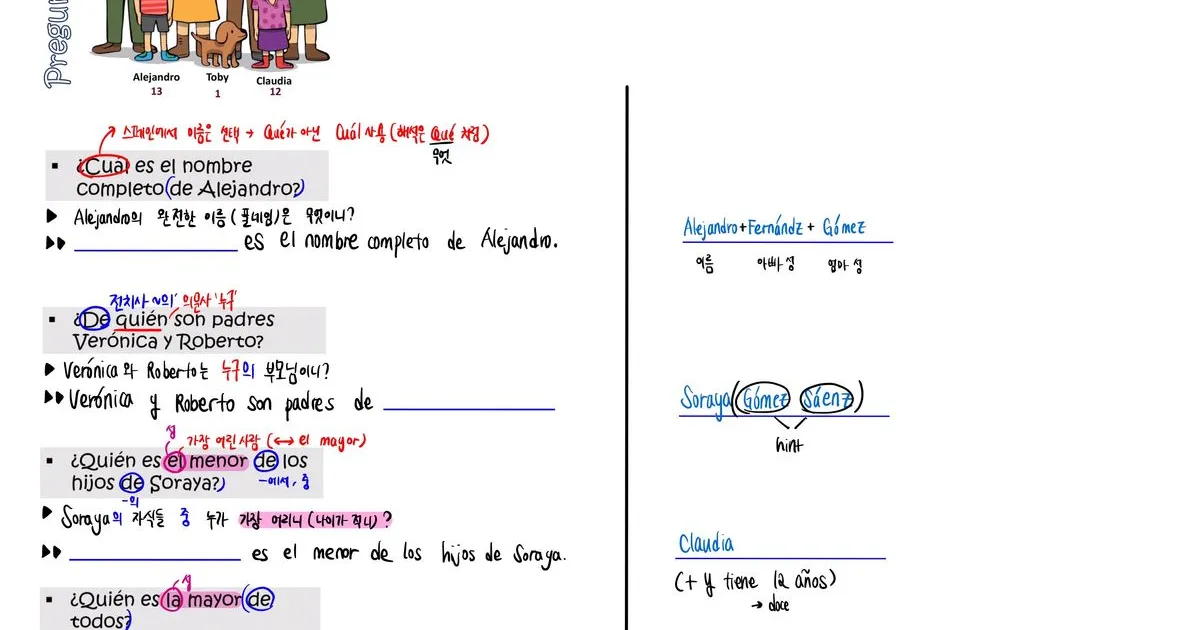 Pregu
Alejandro Toby Claudia
13 1 12
스페인에서 이름은 선택 → Qué가 아닌 Cuál 사용 (해석은 Qué 처럼)
무엇
▪ ¿Cual es el nombre
completo (de Alejandro?)
▶ Alejandro의 완전한 이름 (풀네임)은 무엇이니?
▶▶ ____ es el nombre completo de Alejandro.
Alejandro + Fernándz + Gómez
이름 아빠 성 엄마 성
전치사 ~의' 의문사 '누구'
▪ ¿De quién son padres
Verónica y Roberto?
▶ Verónica 와 Roberto는 누구의 부모님이니?
▶▶ Verónica y Roberto son padres de ____
Soraya (Gómez Sáenz)
hint
성 가장 어린 사람 (↔ el mayor)
▪ ¿Quién es el menor de los
hijos de Soraya?)
-에서, 중
-의
▶ Soraya의 자식들 중 누가 가장 어리니 (나이가 적니)?
▶▶ ____ es el menor de los hijos de Soraya.
Claudia
(+ y tiene 12 años)
→ doce
성
▪ ¿Quién es la mayor (de
todos?